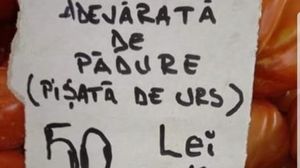 ADEVĂRATĂ
DE
PĂDURE
(PIȘATĂ DE URS)
50 Lei